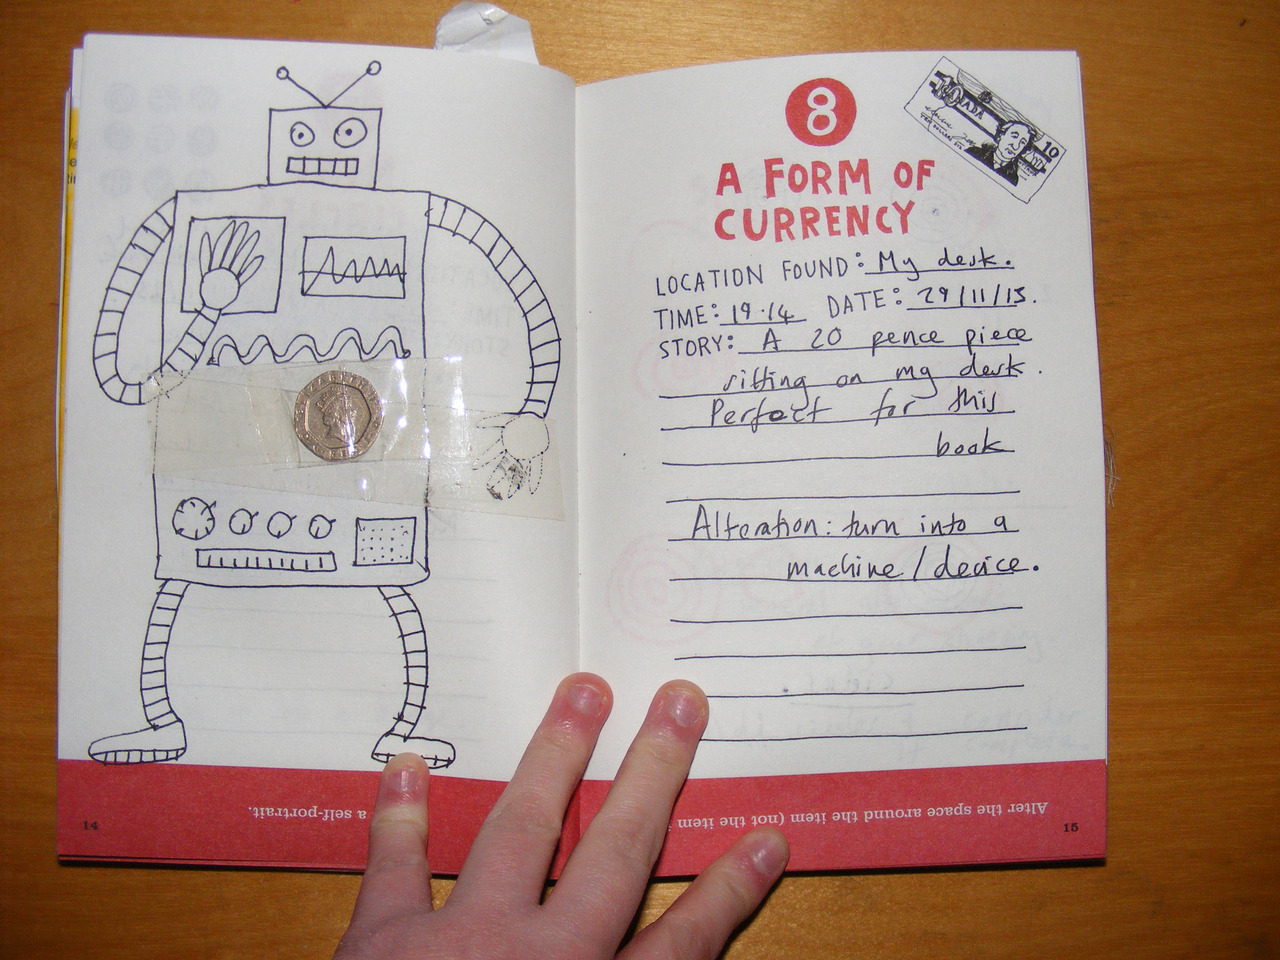 8
A FORM OF
CURRENCY
10
ADA
10
LOCATION FOUND: My desk.
TIME: 19.14 DATE: 29/11/13.
STORY: A 20 pence piece
sitting on my desk.
Perfect for this
book
Alteration: turn into a
machine/device.
a self-portrait.
Alter the space around the item (not the item
14
15